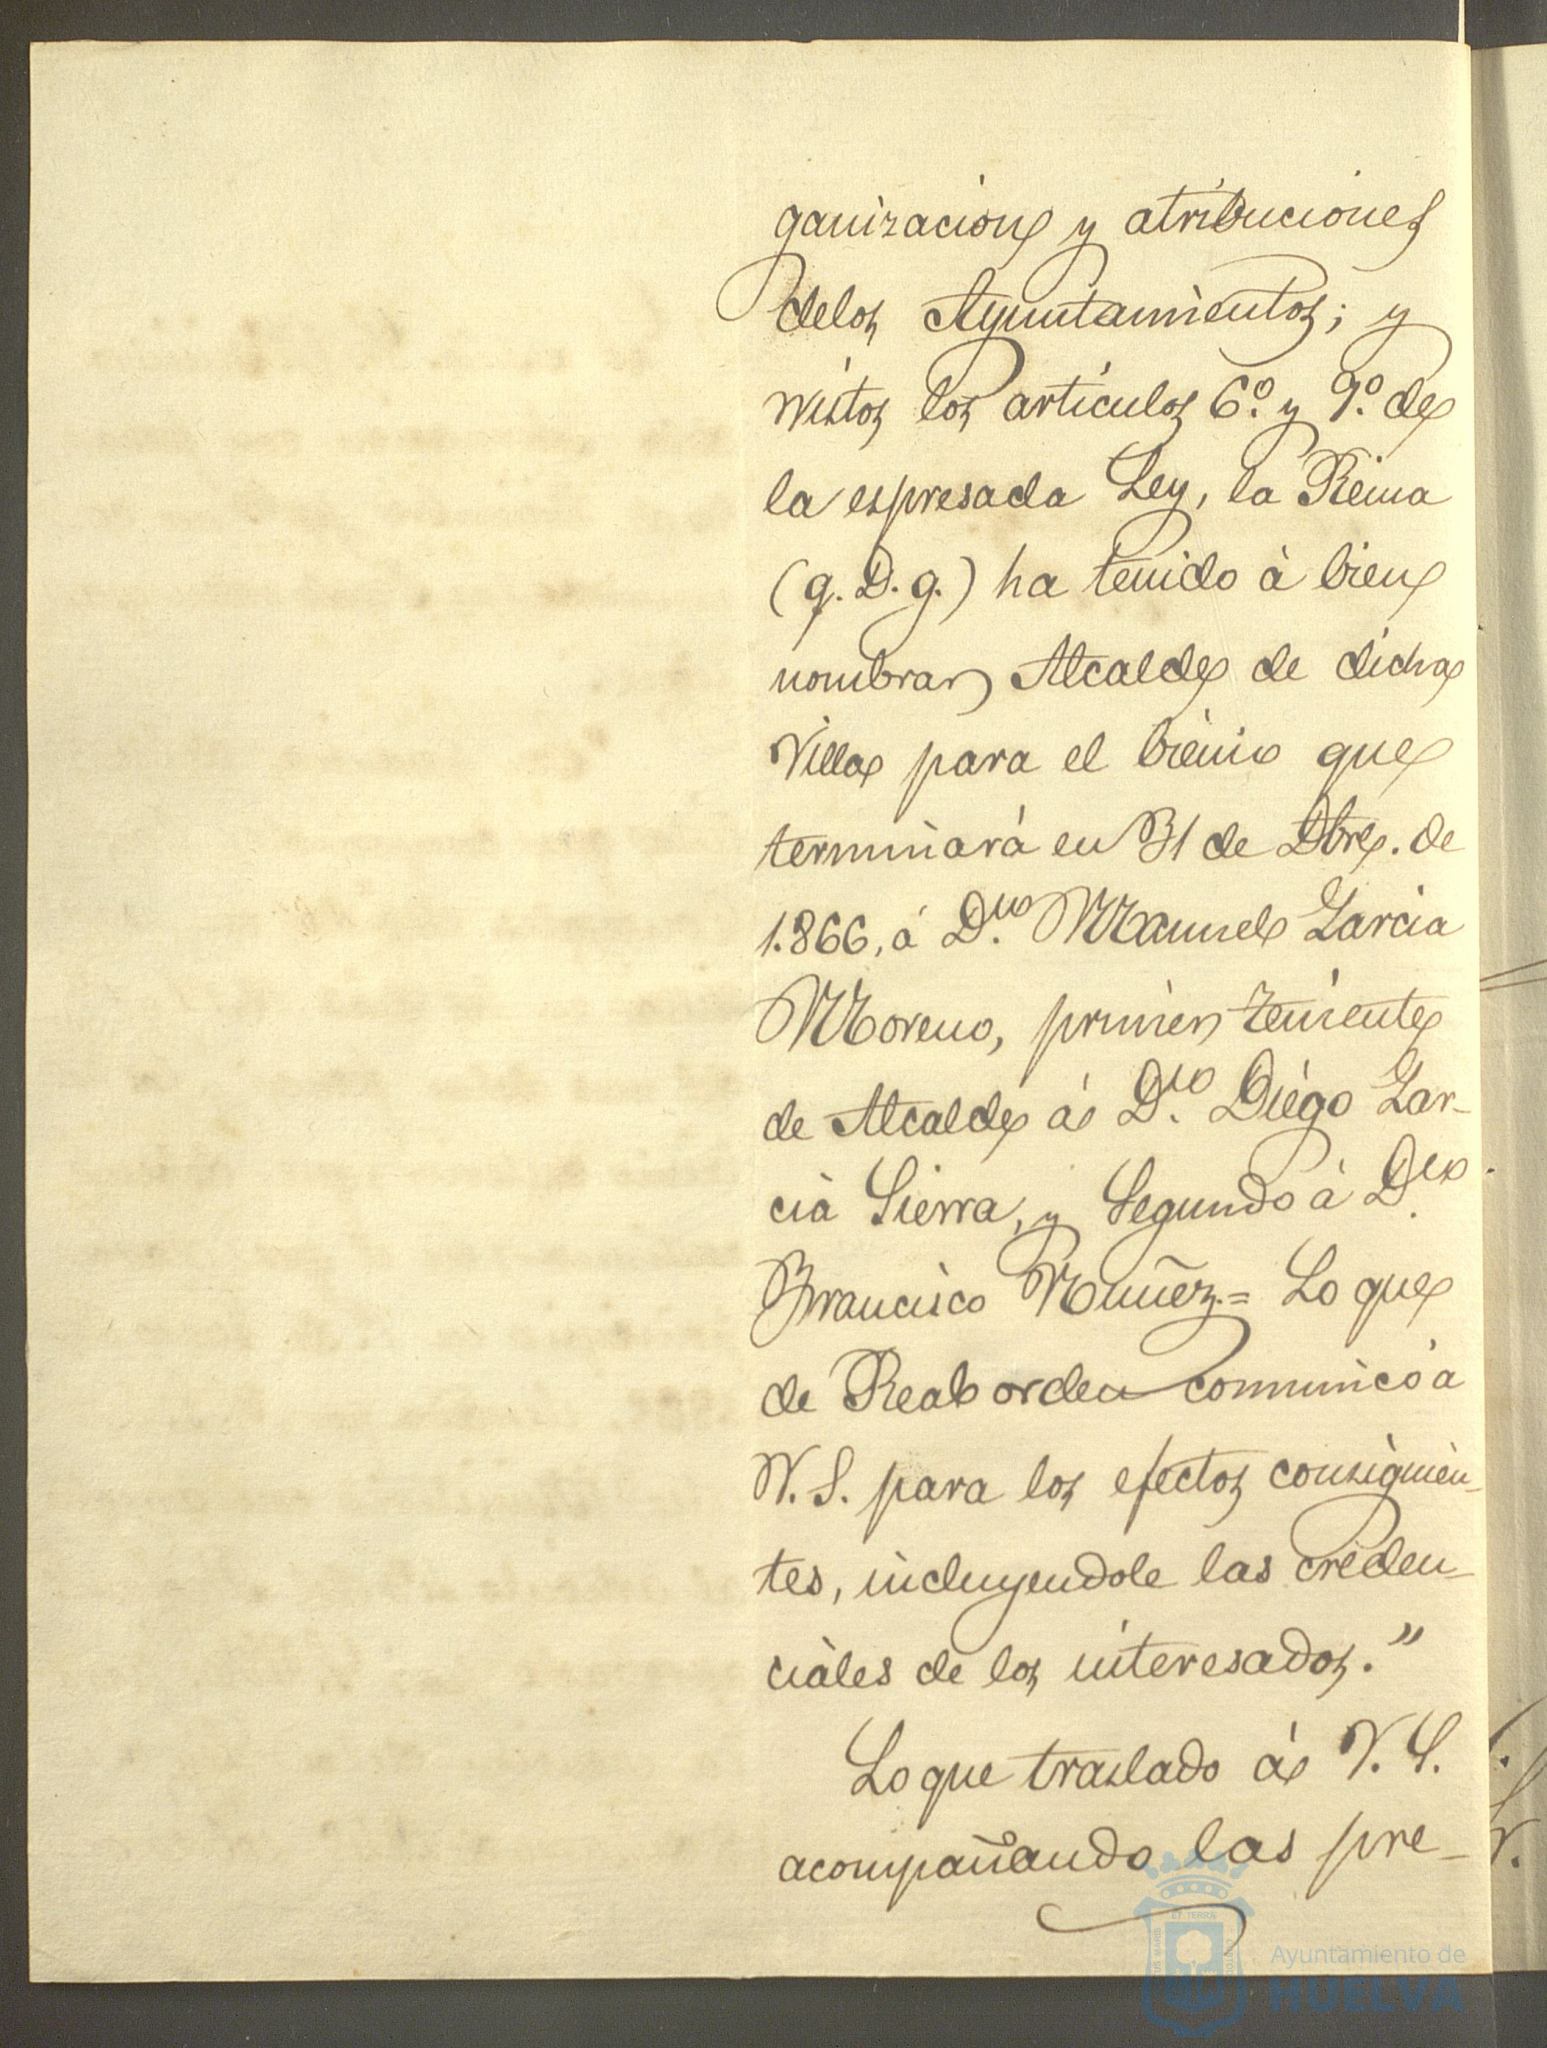 ganizacion y atribuciones
delos Ayuntamientos; y
vistos los articulos 6º y 9º de
la espresada Ley, la Reina
(q. D. g.) ha tenido á bien
nombrar Alcalde de dicha
Villa para el biénio que
terminará en 31 de Dbre. de
1.866, á D.n Manuel Garcia
Moreno, primer teniente
de Alcalde á D.n Diégo Gar-
cia Sierra, y Segundo á D.n
Francisco Muñoz.= Lo que
de Real orden comunico á
V. S. para los efectos consiguien-
tes, incluyendole las creden-
ciales de los interesados."
Lo que traslado á V. S.
acompañando las pre-
Ayuntamiento de
HUELVA